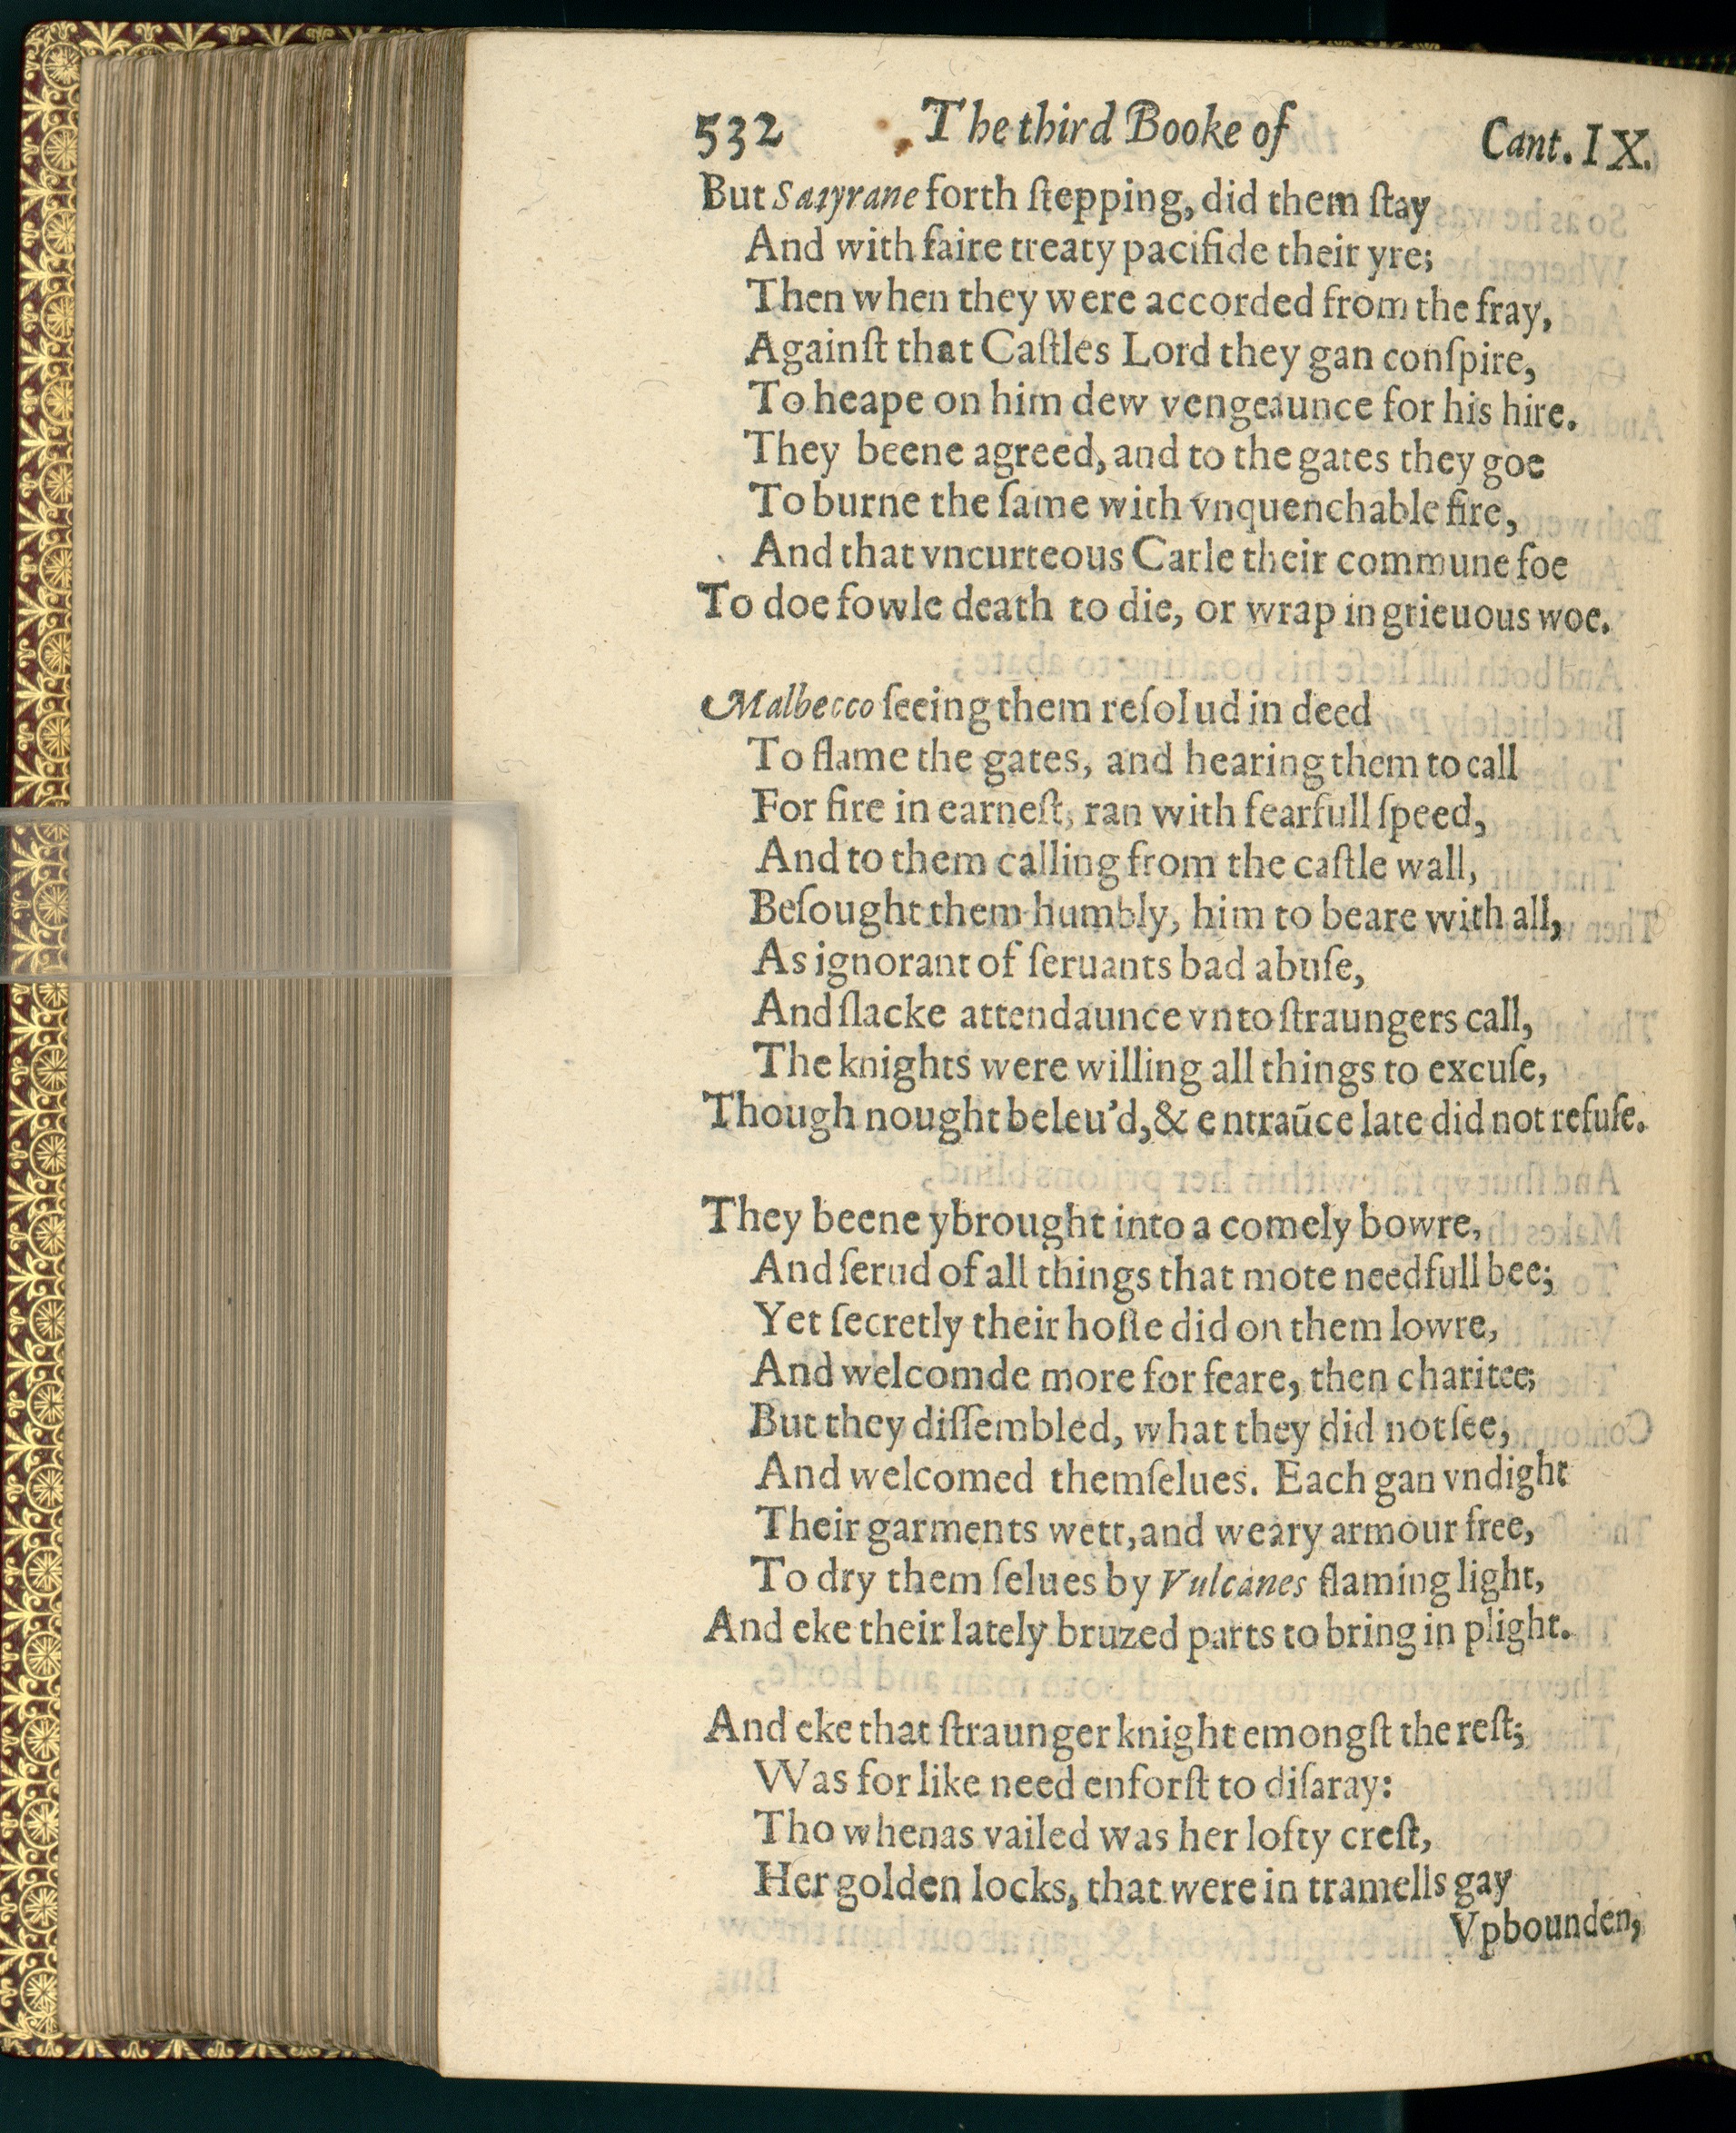 532 The third Booke of Cant. IX.
But Satyrane forth ſtepping, did them ſtay
And with faire treaty pacifide their yre;
Then when they were accorded from the fray,
Againſt that Caſtles Lord they gan conſpire,
To heape on him dew vengeaunce for his hire.
They beene agreed, and to the gates they goe
To burne the ſame with vnquenchable fire,
And that vncurteous Carle their commune foe
To doe fowle death to die, or wrap in grieuous woe.
Malbecco ſeeing them reſolud in deed
To flame the gates, and hearing them to call
For fire in earneſt, ran with fearfull ſpeed,
And to them calling from the caſtle wall,
Beſought them humbly, him to beare with all,
As ignorant of ſeruants bad abuſe,
And ſlacke attendaunce vnto ſtraungers call,
The knights were willing all things to excuſe,
Though nought beleu'd, & entraūce late did not refuſe.
They beene ybrought into a comely bowre,
And ſerud of all things that mote needfull bee;
Yet ſecretly their hoſte did on them lowre,
And welcomde more for feare, then charitee;
But they diſſembled, what they did not ſee,
And welcomed themſelues. Each gan vndight
Their garments wett, and weary armour free,
To dry them ſelues by Vulcanes flaming light,
And eke their lately bruzed parts to bring in plight.
And eke that ſtraunger knight emongſt the reſt;
Was for like need enforſt to diſaray:
Tho whenas vailed was her lofty creſt,
Her golden locks, that were in tramells gay
Vpbounden,